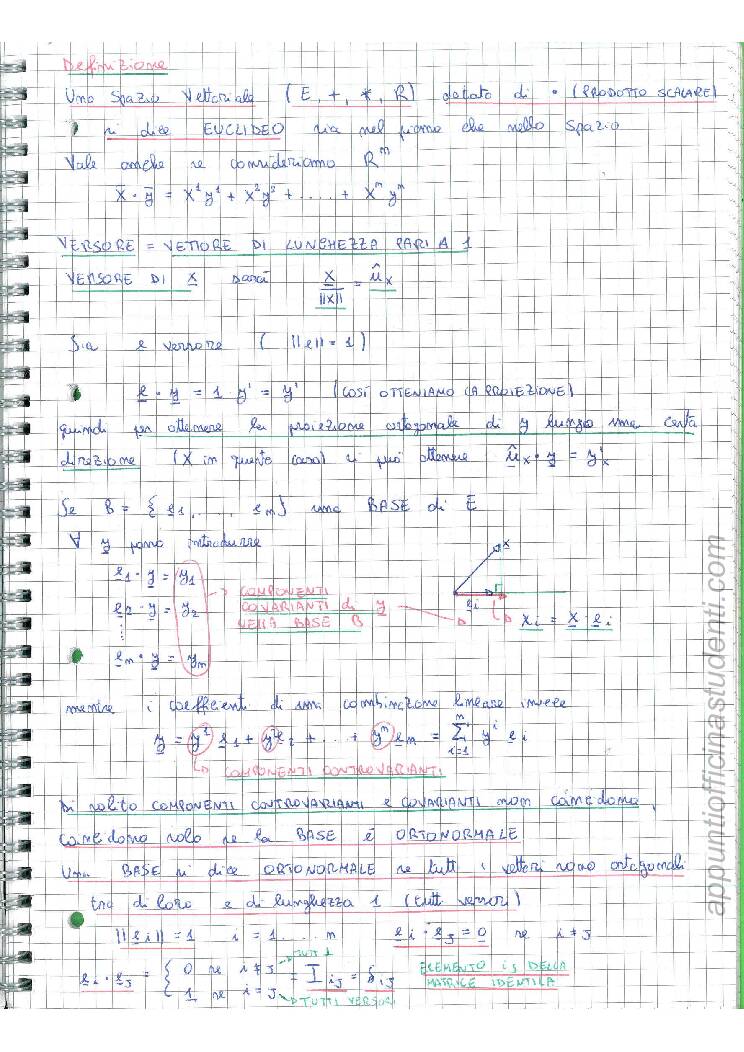 Definizione
Uno spazio Vettoriale (E, +, *, R) dotato di • (PRODOTTO SCALARE)
si dice EUCLIDEO sia nel piano che nello spazio
Vale anche se consideriamo Rⁿ
x̄ · ȳ = x¹y¹ + x²y² + .... + xⁿyⁿ
VERSORE = VETTORE DI LUNGHEZZA PARI A 1
VERSORE DI x sarà x/||x|| = ûx
Sia e versore (||e|| = 1)
e · y = 1 · y' = y' (COSÌ OTTENIAMO LA PROIEZIONE)
quindi per ottenere la proiezione ortogonale di y lungo una certa
direzione (x in questo caso) si può ottenere ûx · y = y'x
Se B = {e1, ..... en} una BASE di E
∀ y posso introdurre
e1 · y = y1
e2 · y = y2
⋮
en · y = yn
COMPONENTI
COVARIANTI di y
NELLA BASE B
x
ei
xi = x · ei
mentre i coefficienti di una combinazione lineare invece
y = y¹ e1 + y² ei + ... + yⁿ en = Σ i=1 n yⁱ ei
COMPONENTI CONTROVARIANTI
Di solito COMPONENTI CONTROVARIANTI e COVARIANTI non coincidono,
coincidono solo se la BASE È ORTONORMALE
Una BASE si dice ORTONORMALE se tutti i vettori sono ortogonali
tra di loro e di lunghezza 1 (tutti versori)
||ei|| = 1 i = 1 .... n ei · eJ = 0 se i ≠ J
ei · eJ = { 0 se i ≠ J
1 se i = J
= IiJ = δiJ
TUTTI VERSORI
ELEMENTO iJ DELLA
MATRICE IDENTITÀ
appuntiofficinastudenti.com